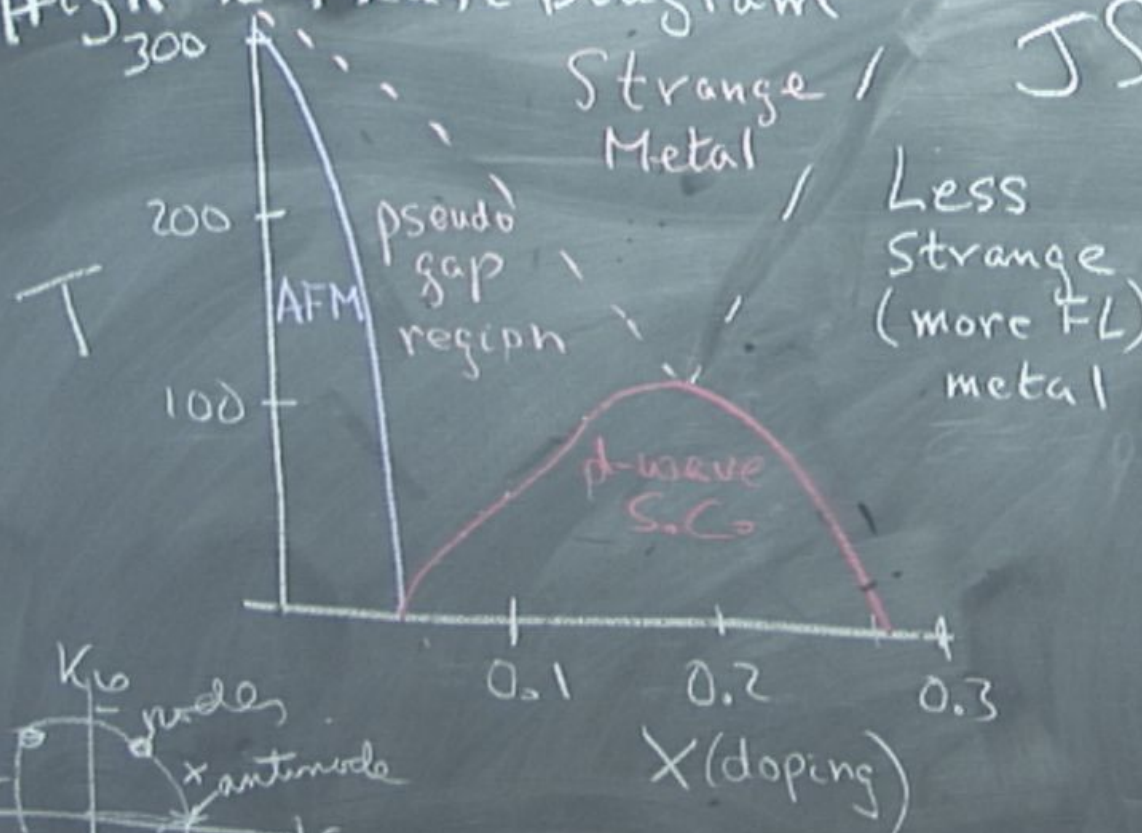 Diagram
300
Strange
Metal
JS
200
pseudo
gap
region
Less
Strange
(more FL)
metal
T
AFM
100
d-wave
S.C.
0.1 0.2 0.3
X (doping)
nodes
x antinode